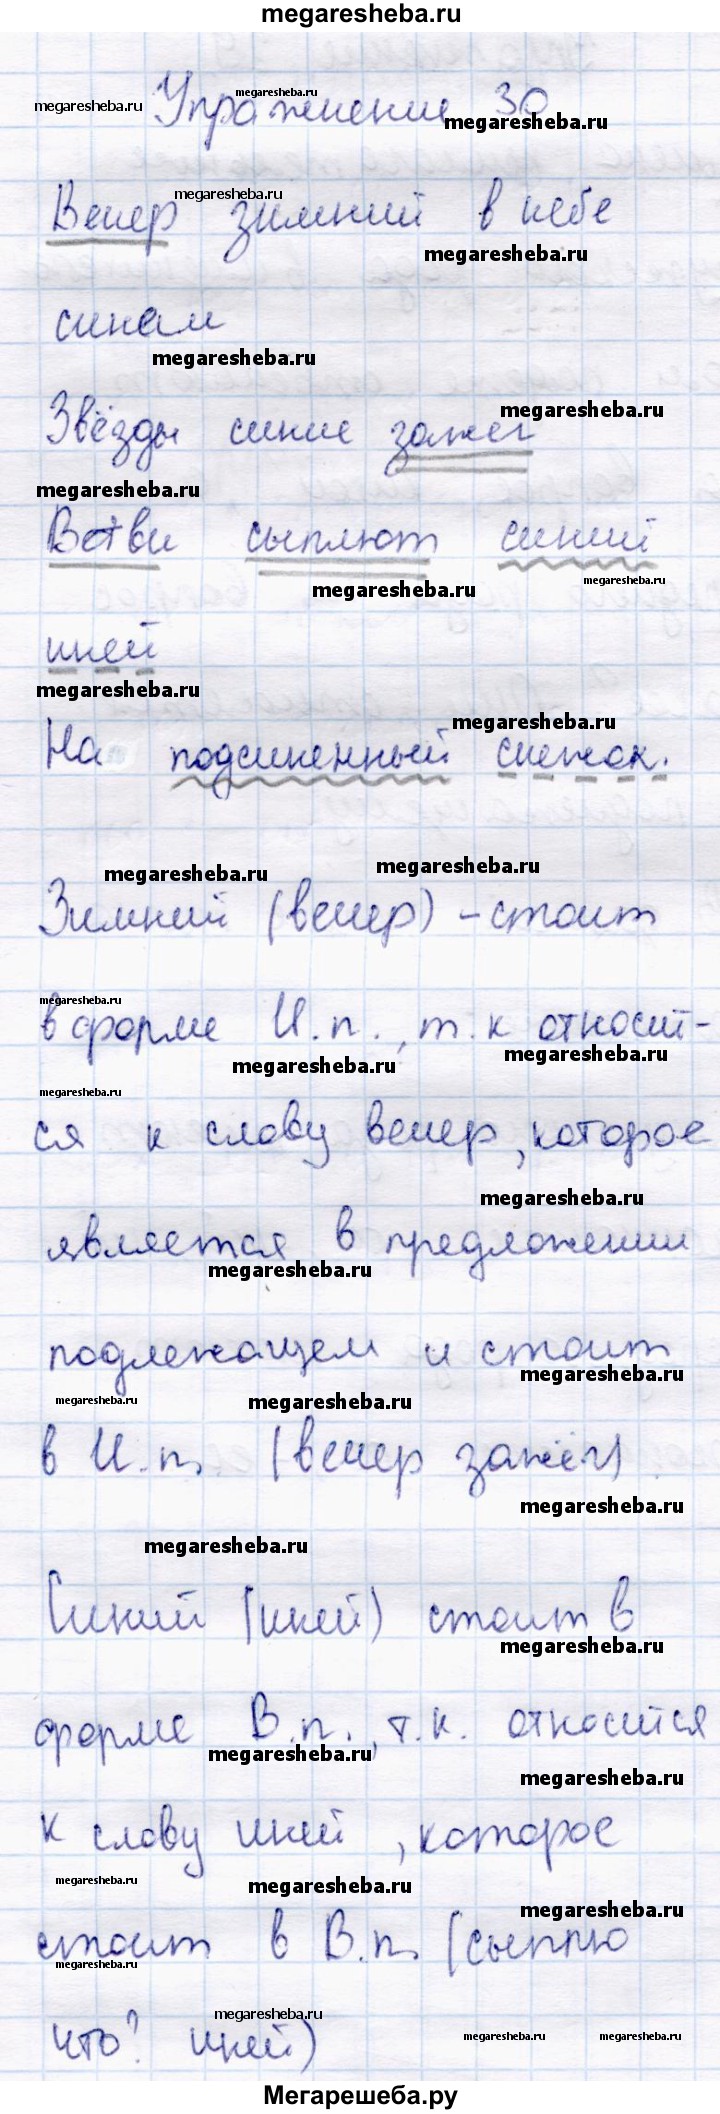 megaresheba.ru
Упражнение 30
Вечер зимний в небе
синем
Звёзды синие зажег
Ветви сыплют синий
иней
На подсиненный снежок.
Зимний (вечер) - стоит
в форме И.п., т.к относит-
ся к слову вечер, которое
является в предложении
подлежащем и стоит
в И.п. (вечер зажёг)
Синий (иней) стоит в
форме В.п., т.к. относится
к слову иней, которое
стоит в В.п. (сыплю
что? иней)
Мегарешеба.ру